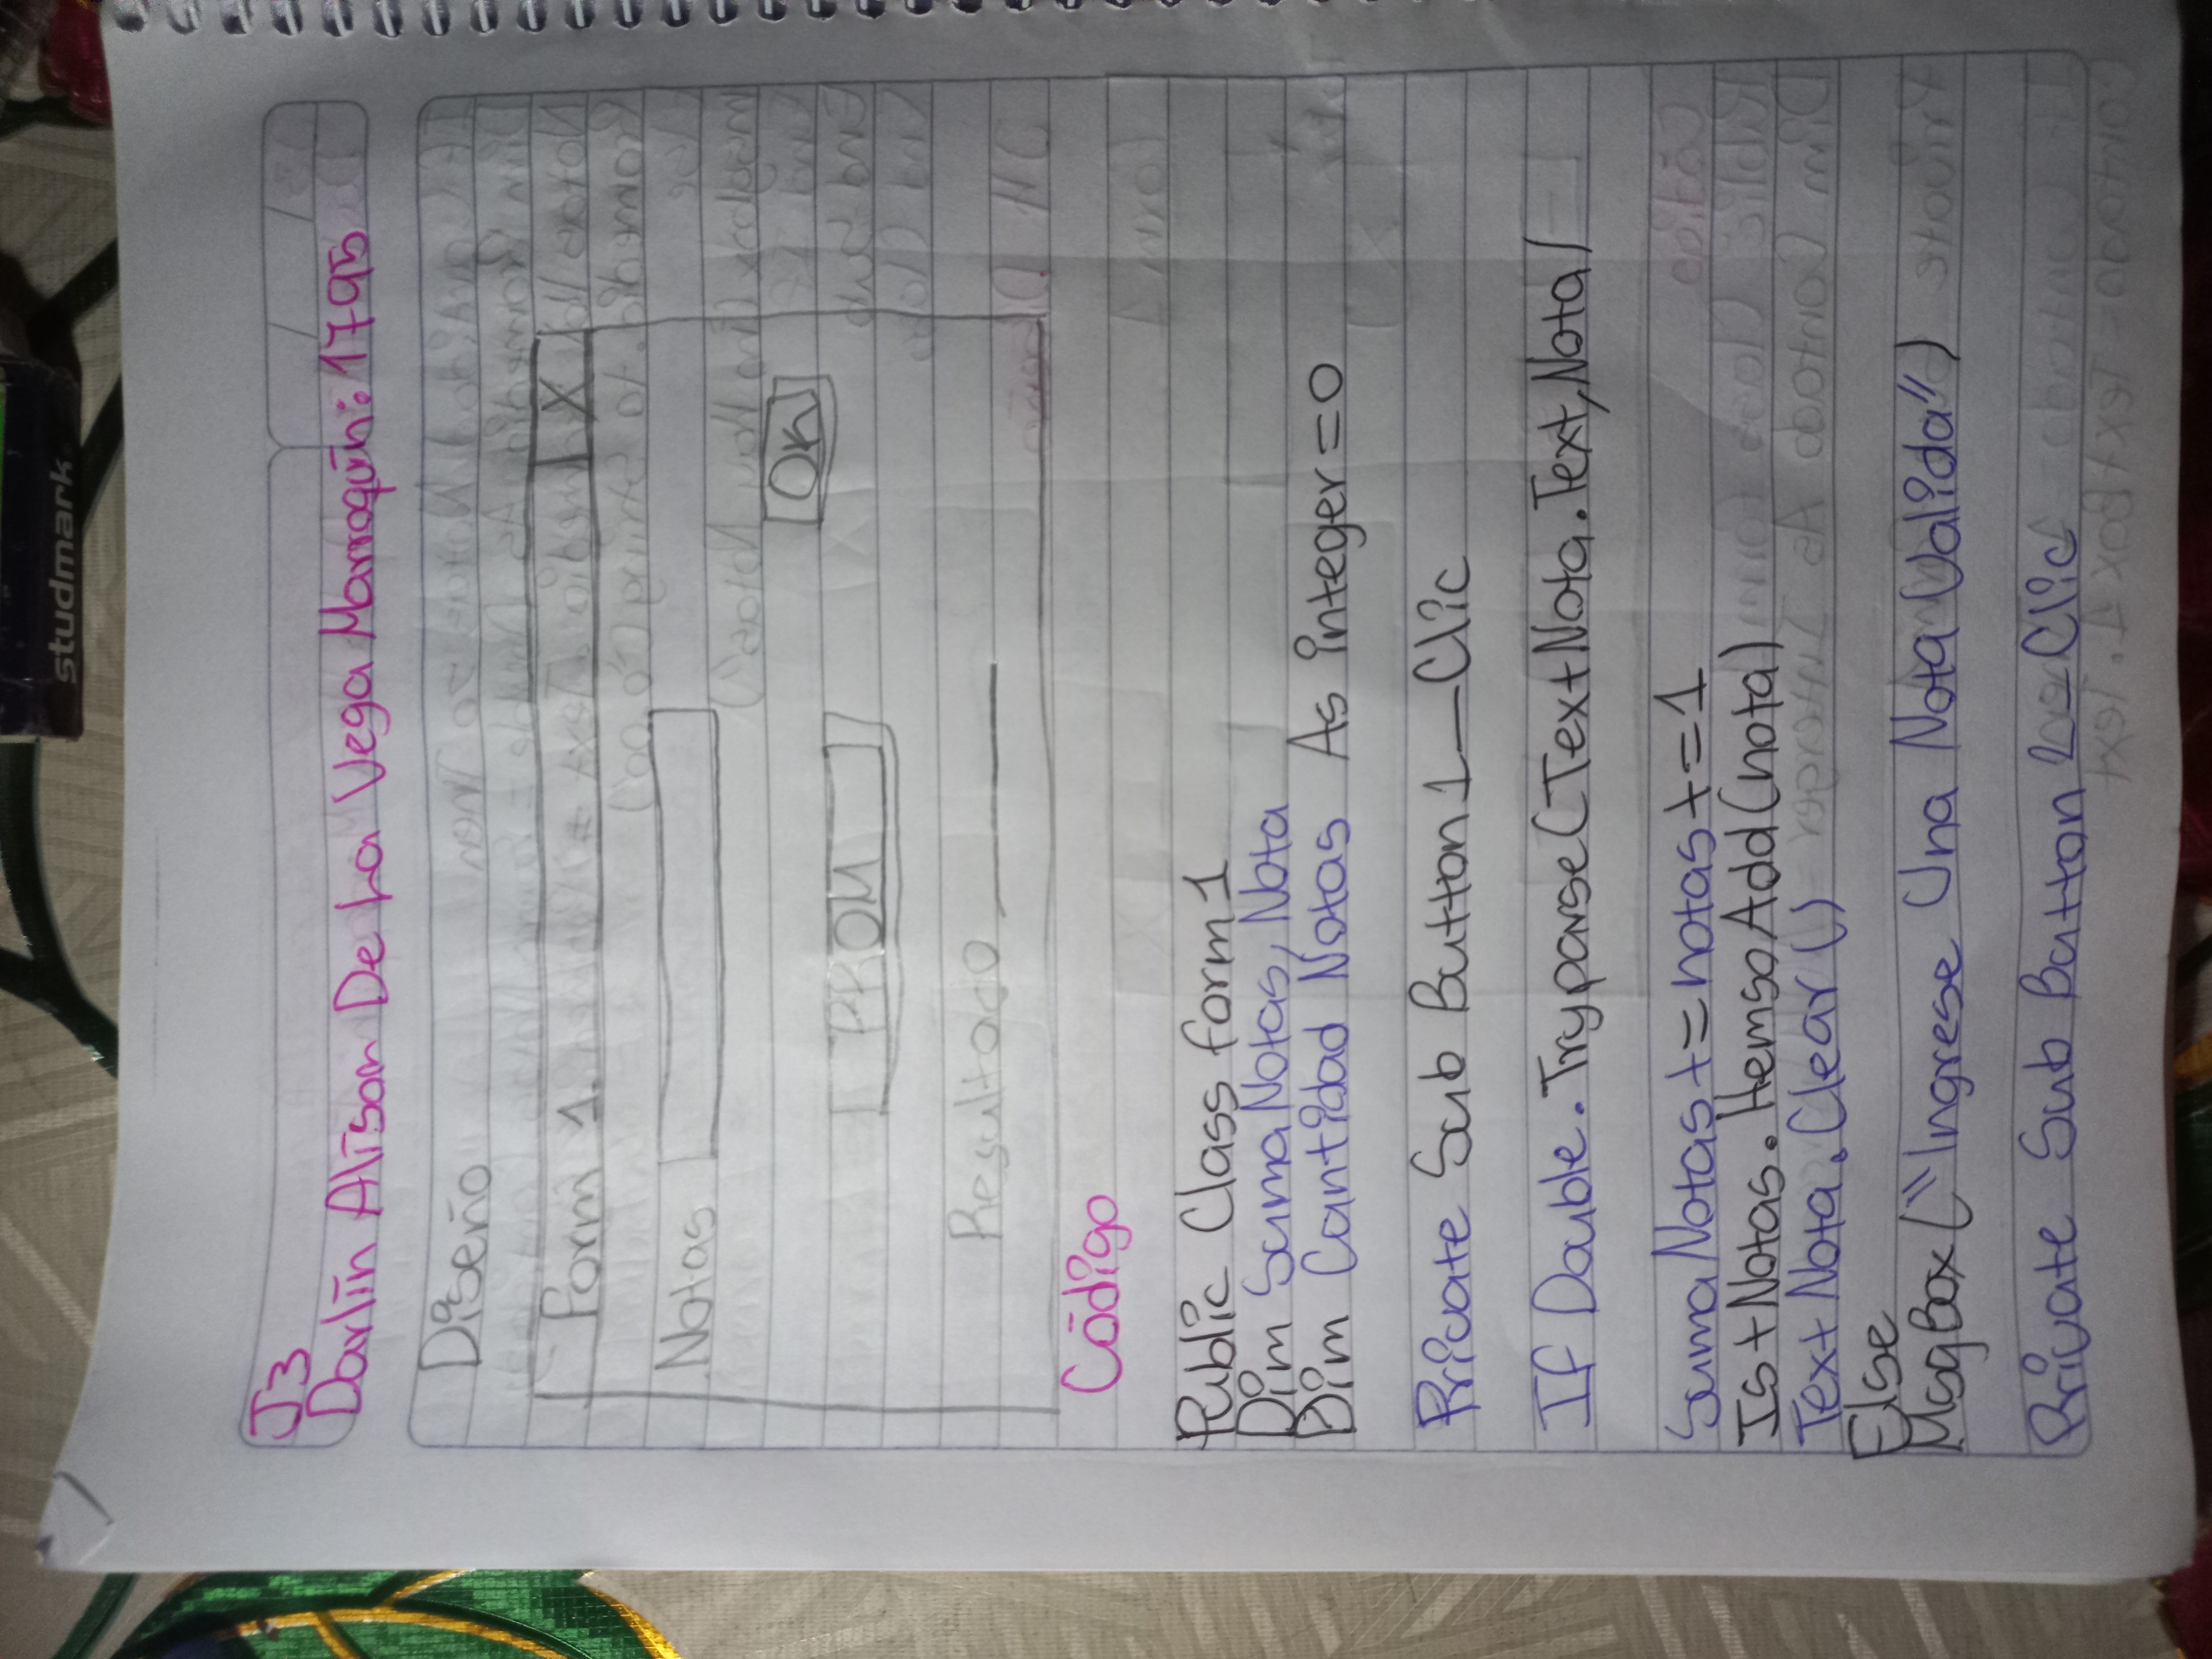 J3
Darlin Alison De La Vega Marroquin: 1795
Diseño
Form 1. X
Notas
OK
PROM
Resultado
Código
Public Class form1
Dim SumaNotas, Nota
Dim Cantidad Notas As integer=0
Pricate Sub Button1_Clic
If Double.Tryparse(TextNota.Text,Nota)
SumaNotas+=notas+=1
Ist Notas.HemsoAdd(nota)
Text Nota.Clear()
Else
MsgBox("Ingrese Una Nota Valida")
Private Sub Button 2_Clic
studmark